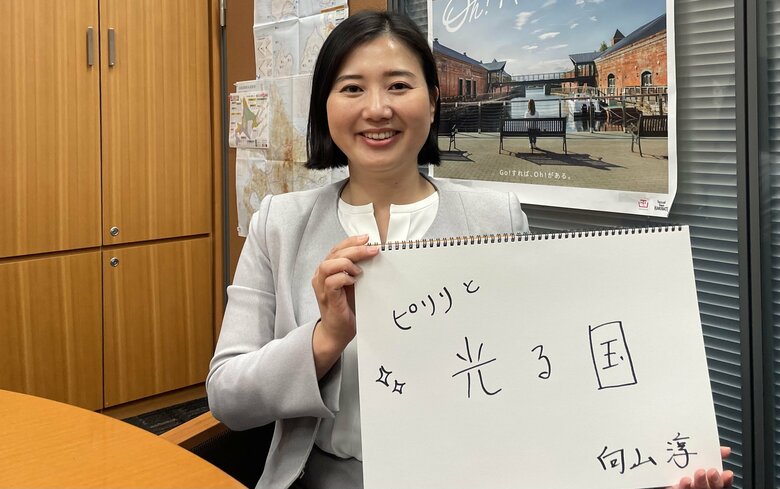 Oh!
Go!すれば、Oh!がある。
ピリリと
光る国
向山淳